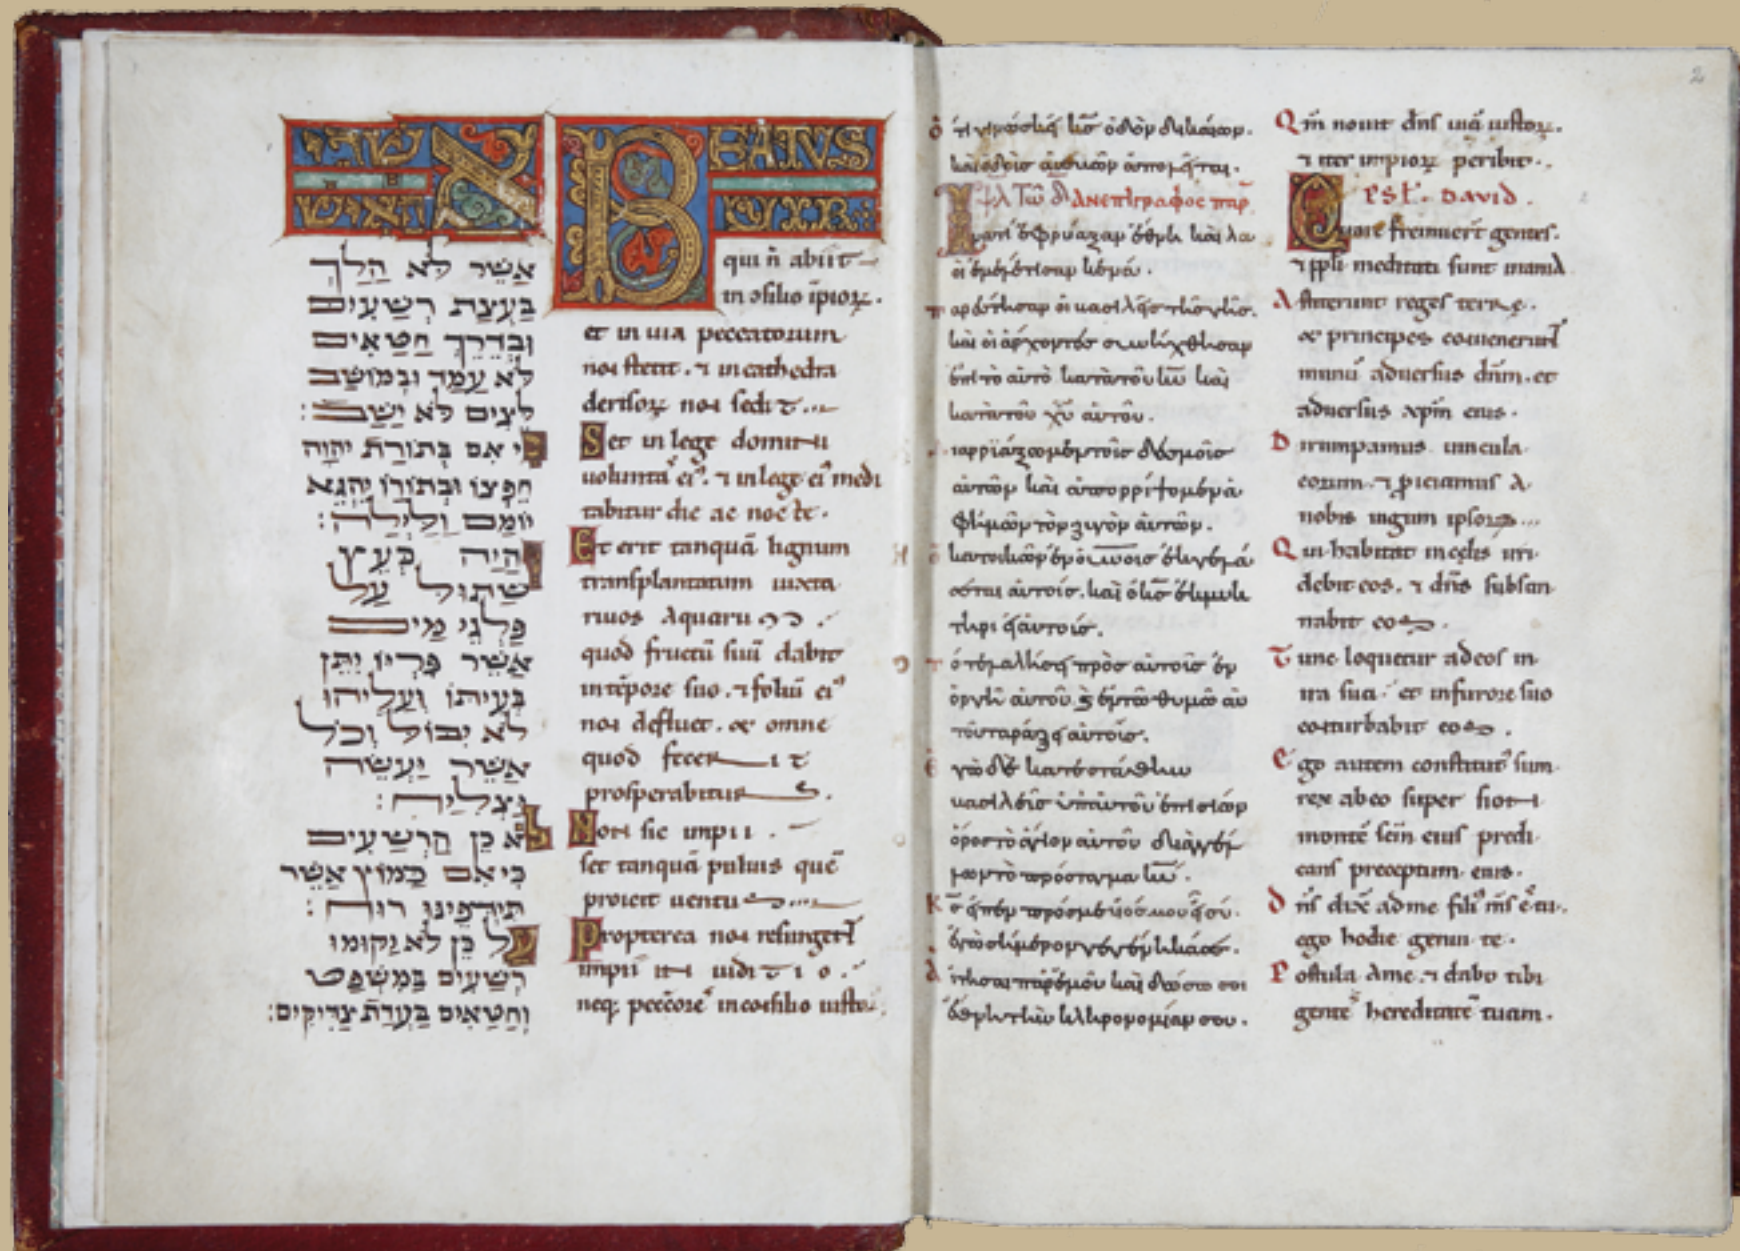 אשרי
האיש
אֲשֶׁר לֹא הָלַךְ
בַּעֲצַת רְשָׁעִים
וּבְדֶרֶךְ חַטָּאִים
לֹא עָמַד וּבְמוֹשַׁב
לֵצִים לֹא יָשָׁב :
כִּי אִם בְּתוֹרַת יְהוָה
חֶפְצוֹ וּבְתוֹרָתוֹ יֶהְגֶּא
יוֹמָם וָלָיְלָה :
וְהָיָה כְּעֵץ
שָׁתוּל עַל
פַּלְגֵי מַיִם
אֲשֶׁר פִּרְיוֹ יִתֵּן
בְּעִיתּוֹ וְעָלֵיהוּ
לֹא יִבּוֹל וְכֹל
אֲשֶׁר יַעֲשֶׂה
יַצְלִיחַ :
לֹא כֵן הָרְשָׁעִים
כִּי אִם כַּמּוֹץ אֲשֶׁר
תִּידְּפֶינּוּ רוּחַ :
עַל כֵּן לֹא יָקוּמוּ
רְשָׁעִים בַּמִּשְׁפָּט
וְחַטָּאִים בַּעֲדַת צַדִּיקִים :
BEATUS
VIR
qui n̄ abiit
in ɔsilio īpioꝝ.
et in uia peccatorum
non stetit. ⁊ in cathedra
derisoꝝ non sedit.
Set in lege domini
uolunta᷒ ei᷒. ⁊ in lege ei᷒ medi
tabitur die ac nocte.
Et erit tanquā lignum
transplantatum iuxta
riuos aquaru
quod fructū suū dabit
in tēpore suo. ⁊ foliū ei᷒
non defluet. & omne
quod fecerit
prosperabitur.
Non sic impii.
set tanquā puluis quē
proicit uentus
Propterea non resurgent
impii in iuditio.
neq; peccore᷒ in consilio iusto
2
ὅτι γινώσκει κ̅σ̅ ὁδὸν δικαίων.
καὶ ὁδὸς ἀσεβῶν ἀπολεῖται.
ΨΑΛ Τῶ Δ̅Α̅Δ̅ ΑΝΕΠΙΓΡΑΦΟΣ ΠΑΡ
Ἱνατί ἐφρύαξαν ἔθνη καὶ λα
οὶ ἐμελέτισαν κενά.
παρέστησαν οἱ βασιλεῖς τῆς γῆς.
καὶ οἱ ἄρχοντές συνήχθησαν
ἐπὶ τὸ αὐτὸ κατὰ τοῦ κ̅υ̅ καὶ
κατὰ τοῦ χ̅υ̅ αὐτοῦ.
διαρρίξωμεν τοὺς δεσμοὺς
αὐτῶν καὶ ἀπορρίψομεν ἀ
φ' ἡμῶν τὸν ζυγὸν αὐτῶν.
ὁ κατοικῶν ἐν οὐ̅νοῖς ἐκγελά
σεται αὐτούς. καὶ ὁ κ̅σ̅ ἐκμυκ
τηριεῖ αὐτούς.
τότε λαλήσει πρὸς αὐτοὺς ἐν
ὀργῆ αὐτοῦ ϗ ἐν τῶ θυμῶ αὐ
τοῦ ταράξει αὐτούς.
ἐγὼ δὲ κατεστάθην
βασιλεὺς ὑπ' αὐτοῦ ἐπὶ σιὼν
ὄρος τὸ ἅγιον αὐτοῦ διαγγέλ
λων τὸ πρόσταγμα κ̅υ̅.
κ̅σ̅ εἶπεν πρόσ με υἱός μου εἶ σύ.
ἐγὼ σήμερον γεγέννηκά σε.
αἴτησαι παρ' ἐμοῦ καὶ δώσω σοι
ἔθνη τὴν κληρονομίαν σου.
Qm̄ nouit dn̄s uiā iustoꝝ.
⁊ iter impioꝝ peribit.
PSL. DAVID.
Quare fremuer̄t gentes.
⁊ ppl̄i meditati sunt inania
Astiterunt reges terrę.
& principes conuenerunt
in unū aduersus dn̄m. et
aduersus xpm̄ eius.
Dirumpamus uincula
eorum. ⁊ ꝓiciamus a
nobis iugum ipsoꝝ
Qui habitat in cęlis irri
debit eos. ⁊ dn̄s subsan
nabit eos.
Tunc loquetur ad eos in
ira sua. et in furore suo
conturbabit eos.
Ego autem constitut᷒ sum
rex ab eo super sion
montē scm̄ eius predi
cans preceptum eius.
Dn̄s dix̄ ad me fili᷒ m̄s ē tu.
ego hodie genui te.
Postula a me. ⁊ dabo tibi
gente᷒ hereditatē tuam.